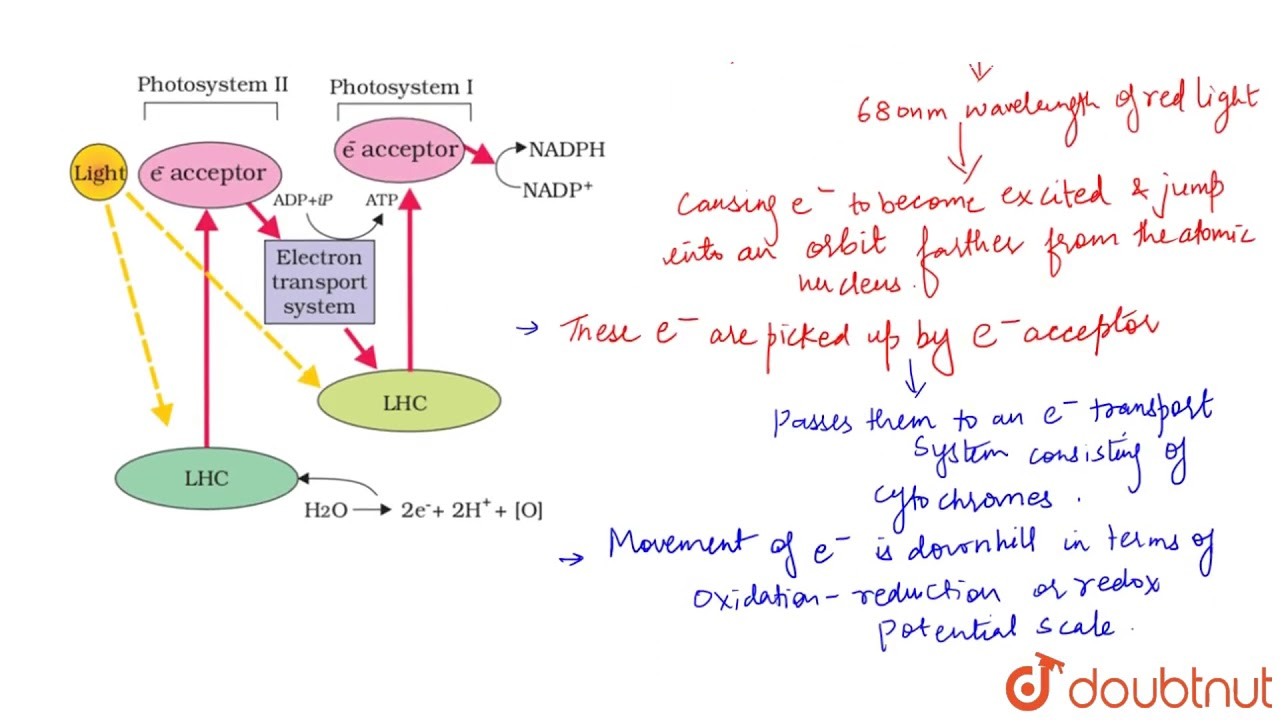 Photosystem II
Photosystem I
Light
e⁻ acceptor
e⁻ acceptor
NADPH
NADP⁺
ADP+iP
ATP
Electron
transport
system
LHC
LHC
H2O → 2e⁻+ 2H⁺ + [O]
680nm wavelength of red light
Causing e⁻ to become excited & jump
into an orbit farther from the atomic
nucleus.
→ These e⁻ are picked up by e⁻ acceptor
Passes them to an e⁻ transport
system consisting of
cytochromes.
→ Movement of e⁻ is downhill in terms of
oxidation-reduction or redox
potential scale.
doubtnut